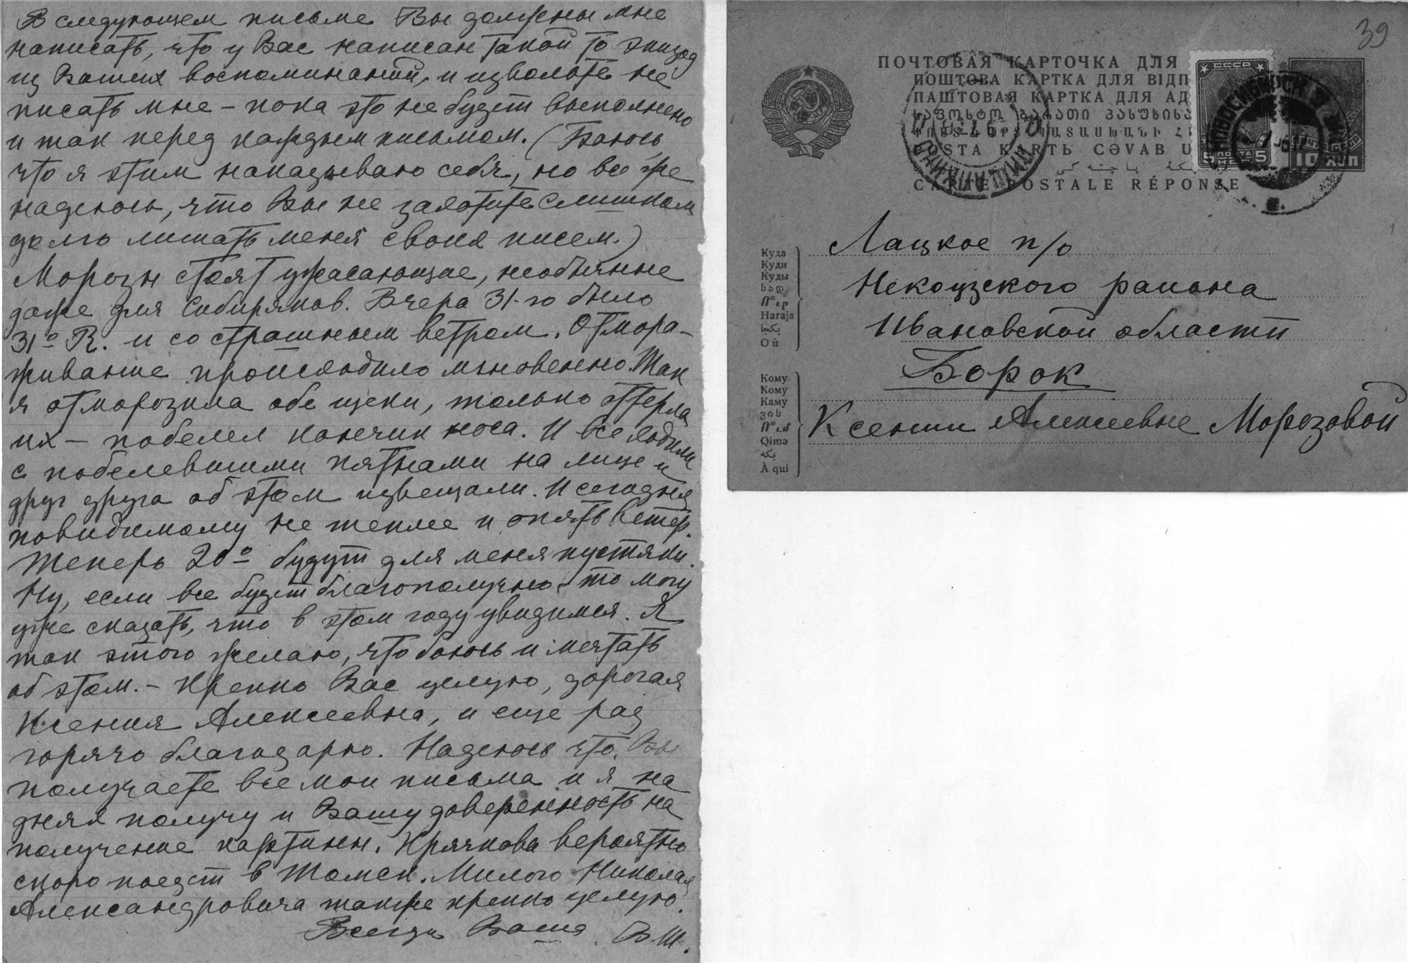 В следующем письме Вы должны мне
написать, что у Вас написан такой то эпизод
из Ваших воспоминаний, и извольте не
писать мне – пока это не будет выполнено
и так перед каждым письмом. (Боюсь
что я этим наказываю себя, но все же
надеюсь, что Вы не захотите слишком
долго лишать меня своих писем.)
Морозы стоят ужасающие, необычные
даже для Сибиряков. Вчера 31-го было
31° R. и со страшным ветром. Отмора-
живание происходило мгновенно. Так
я отморозила обе щеки, только оттерла
их – побелел кончик носа. И все ходили
с побелевшими пятнами на лице и
друг друга об этом извещали. И сегодня
повидимому не теплее и опять ветер.
Теперь 20° будут для меня пустяки.
Ну, если все будет благополучно – то могу
уже сказать, что в этом году увидимся. Я
так этого желаю, что боюсь и мечтать
об этом. – Крепко Вас целую, дорогая
Ксения Алексеевна, и еще раз
горячо благодарю. Надеюсь что Вы
получаете все мои письма и я на
днях получу и Вашу доверенность на
получение картины. Крячкова вероятно
скоро поедет в Томск. Милого Николая
Александровича также крепко целую.
Всегда Ваша В.Ш.
39
ПОЧТОВАЯ КАРТОЧКА ДЛЯ
ПОШТОВА КАРТКА ДЛЯ ВІДП
ПАШТОВАЯ КАРТКА ДЛЯ АД
POSTA KARTЬ CƏVAB U
CARTE POSTALE RÉPONSE
СССР
5 ПОЧТА 5
10 КОП
Куда
Куди
Куды
Haraja
Où
Лацкое п/о
Некоузского района
Ивановской области
Борок
Кому
Кому
Каму
Qimə
À qui
Ксении Алексеевне Морозовой